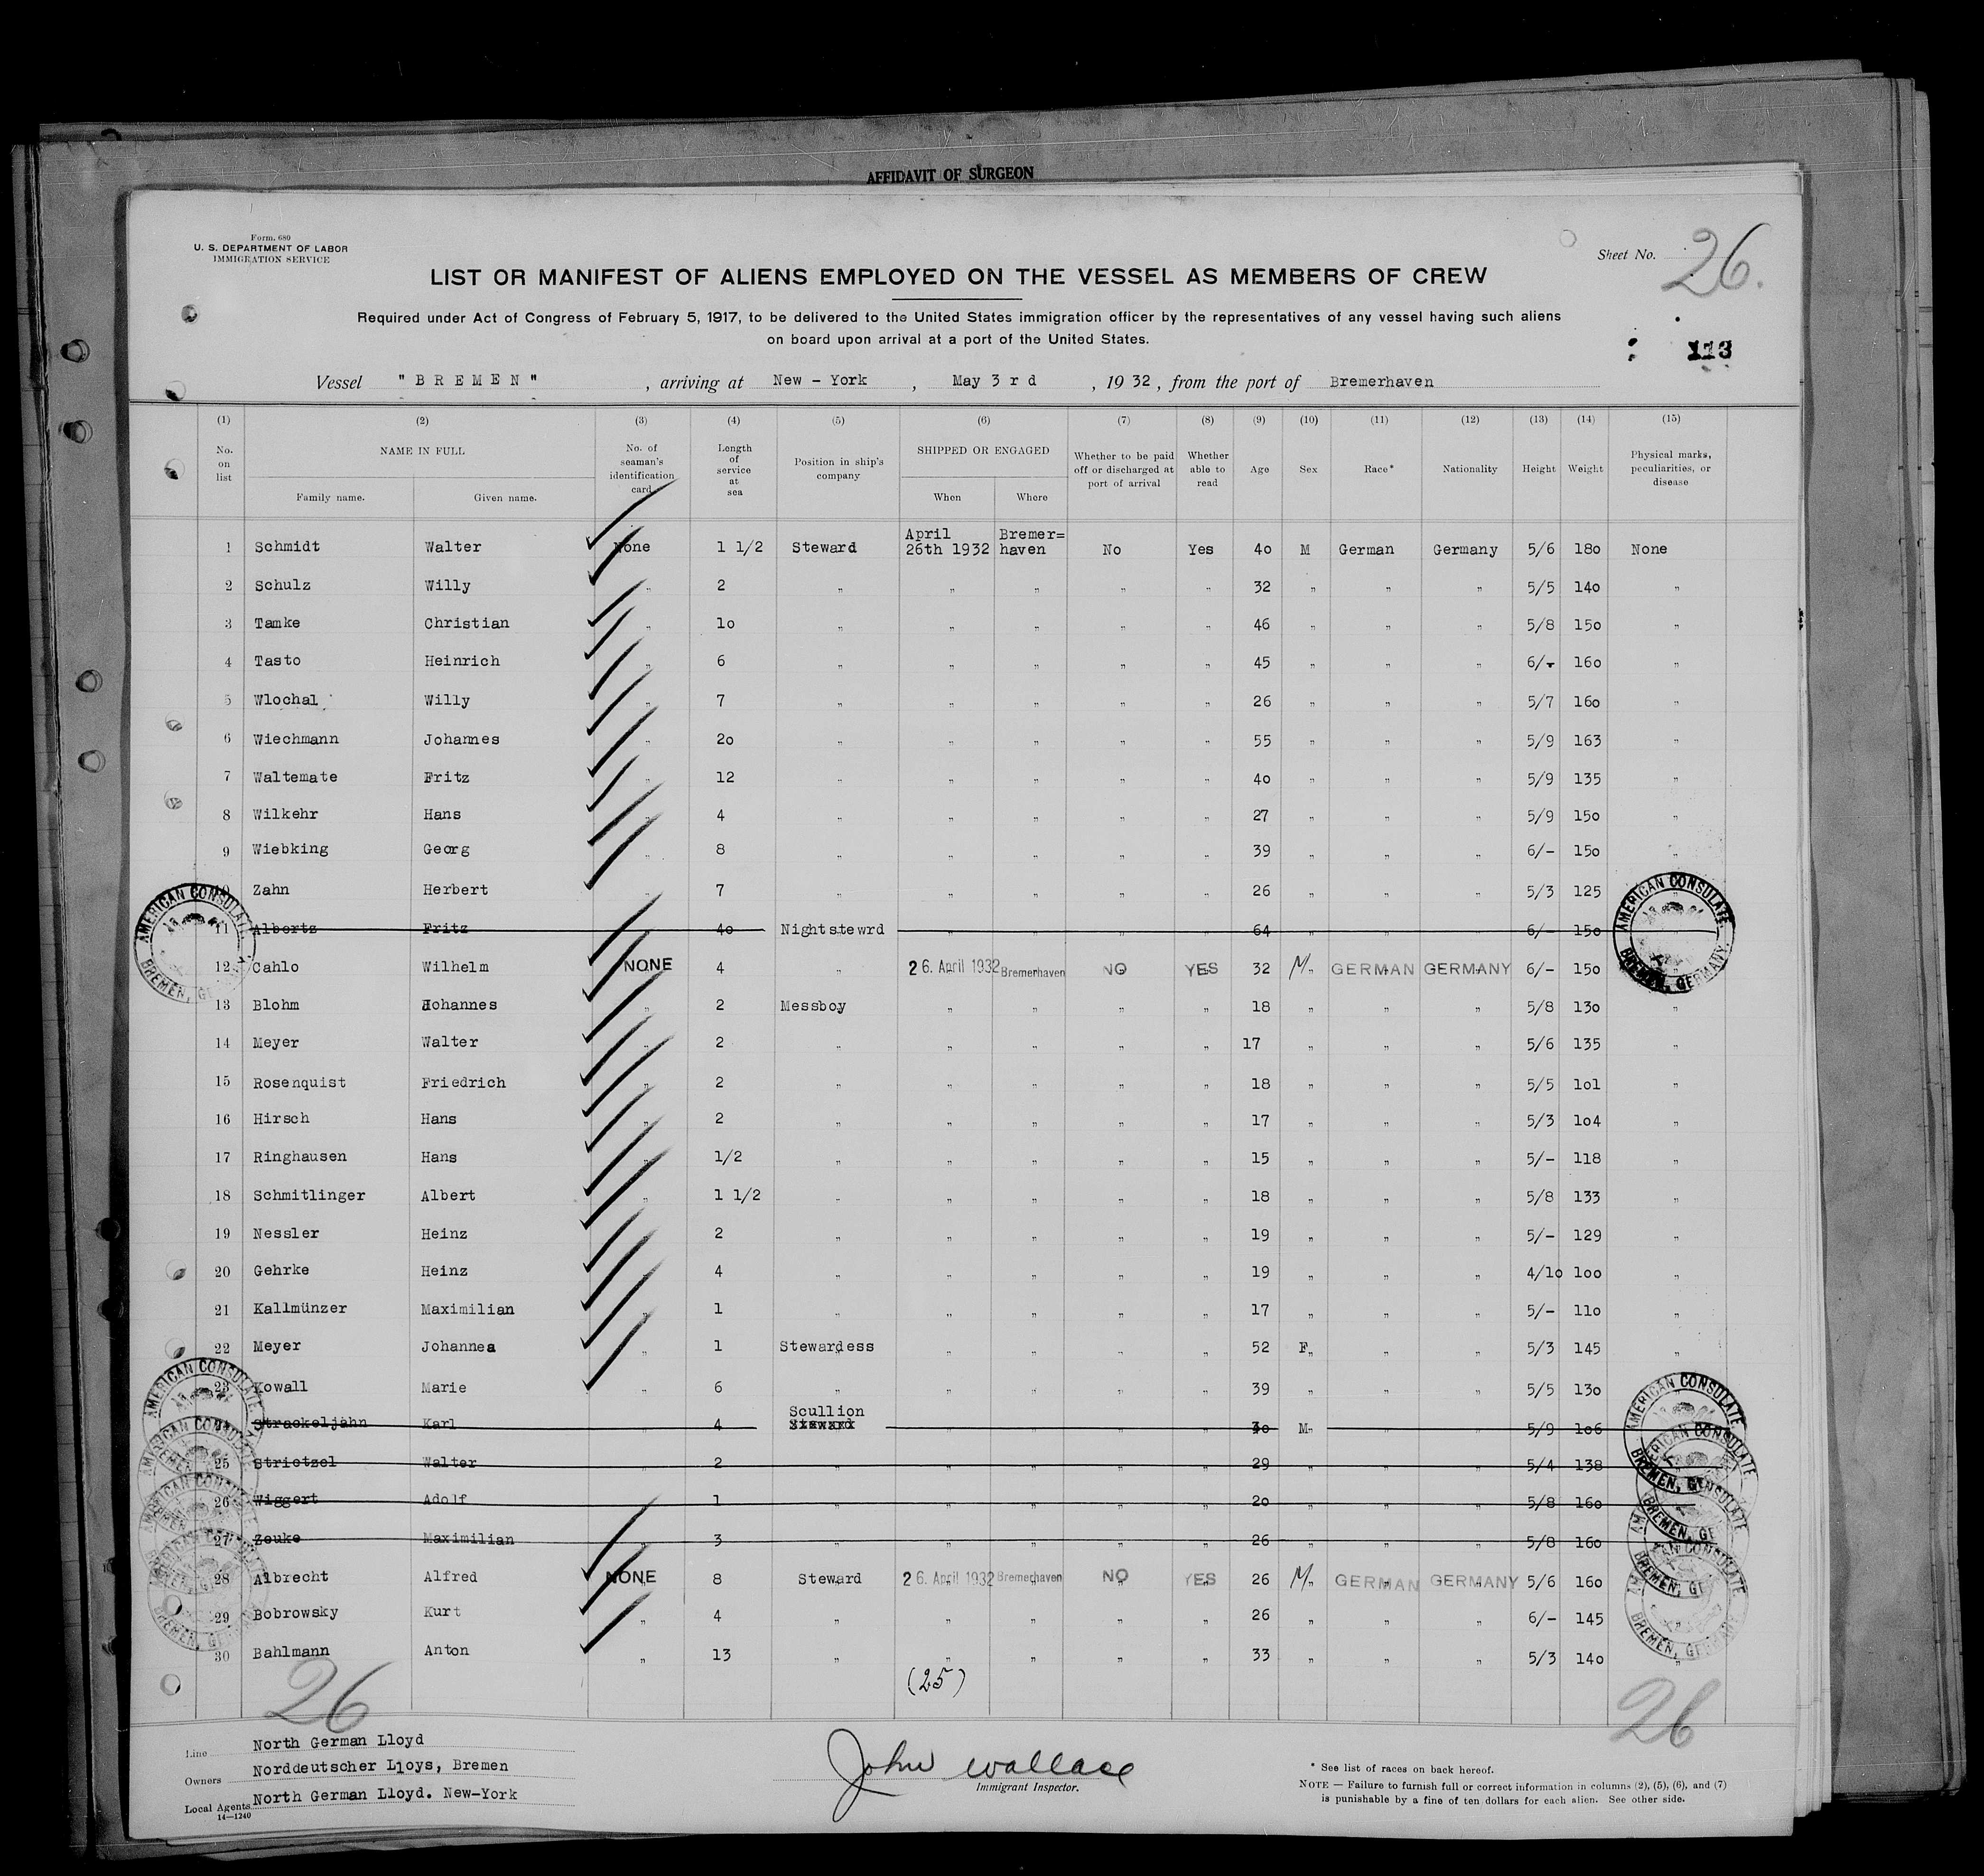 AFFIDAVIT OF SURGEON
Form. 680
U. S. DEPARTMENT OF LABOR
IMMIGRATION SERVICE
Sheet No. 26.
LIST OR MANIFEST OF ALIENS EMPLOYED ON THE VESSEL AS MEMBERS OF CREW
Required under Act of Congress of February 5, 1917, to be delivered to the United States immigration officer by the representatives of any vessel having such aliens
on board upon arrival at a port of the United States.
113
Vessel "BREMEN" , arriving at New - York , May 3rd , 1932, from the port of Bremerhaven
(1) (2) (3) (4) (5) (6) (7) (8) (9) (10) (11) (12) (13) (14) (15)
No. on list NAME IN FULL Family name. Given name. No. of seaman's identification card Length of service at sea Position in ship's company SHIPPED OR ENGAGED When Where Whether to be paid off or discharged at port of arrival Whether able to read Age Sex Race* Nationality Height Weight Physical marks, peculiarities, or disease
1 Schmidt Walter None 1 1/2 Steward April 26th 1932 Bremer= haven No Yes 40 M German Germany 5/6 180 None
2 Schulz Willy " 2 " " " " " 32 " " " 5/5 140 "
3 Tamke Christian " 10 " " " " " 46 " " " 5/8 150 "
4 Tasto Heinrich " 6 " " " " " 45 " " " 6/- 160 "
5 Wlochal Willy " 7 " " " " " 26 " " " 5/7 160 "
6 Wiechmann Johannes " 20 " " " " " 55 " " " 5/9 163 "
7 Waltemate Fritz " 12 " " " " " 40 " " " 5/9 135 "
8 Wilkehr Hans " 4 " " " " " 27 " " " 5/9 150 "
9 Wiebking Georg " 8 " " " " " 39 " " " 6/- 150 "
10 Zahn Herbert " 7 " " " " " 26 " " " 5/3 125 "
11 Albertz Fritz 40 Nightstewrd " " " " 64 " " " 6/- 150
12 Cahlo Wilhelm NONE 4 " 26. April 1932 Bremerhaven NO YES 32 M" GERMAN GERMANY 6/- 150
13 Blohm Johannes " 2 Messboy " " " " 18 " " " 5/8 130 "
14 Meyer Walter " 2 " " " " " 17 " " " 5/6 135 "
15 Rosenquist Friedrich " 2 " " " " " 18 " " " 5/5 101 "
16 Hirsch Hans " 2 " " " " " 17 " " " 5/3 104 "
17 Ringhausen Hans " 1/2 " " " " " 15 " " " 5/- 118 "
18 Schmitlinger Albert " 1 1/2 " " " " " 18 " " " 5/8 133 "
19 Nessler Heinz " 2 " " " " " 19 " " " 5/- 129 "
20 Gehrke Heinz " 4 " " " " " 19 " " " 4/10 100 "
21 Kallmünzer Maximilian " 1 " " " " " 17 " " " 5/- 110 "
22 Meyer Johannea " 1 Stewardess " " " " 52 F" " " 5/3 145 "
23 Kowall Marie " 6 " " " " " 39 " " " 5/5 130
Strackeljahn Karl 4 Scullion Steward " " " " 30 M" " " 5/9 106
25 Strietzel Walter " 2 " " " " " 29 " " " 5/4 138
26 Wiggert Adolf " 1 " " " " " 20 " " " 5/8 160
27 Zeuke Maximilian " 3 " " " " " 26 " " " 5/8 160
28 Albrecht Alfred NONE 8 Steward 26. April 1932 Bremerhaven NO YES 26 M" GERMAN GERMANY 5/6 160
29 Bobrowsky Kurt " 4 " " " " " 26 " " " 6/- 145
30 Bahlmann Anton " 13 " " " " " 33 " " " 5/3 140 "
AMERICAN CONSULATE BREMEN, GERMANY
(25)
26
26
Line North German Lloyd
Owners Norddeutscher Lloys, Bremen
Local Agents North German Lloyd. New-York
14—1240
John Wallace
Immigrant Inspector.
* See list of races on back hereof.
NOTE — Failure to furnish full or correct information in columns (2), (5), (6), and (7)
is punishable by a fine of ten dollars for each alien. See other side.